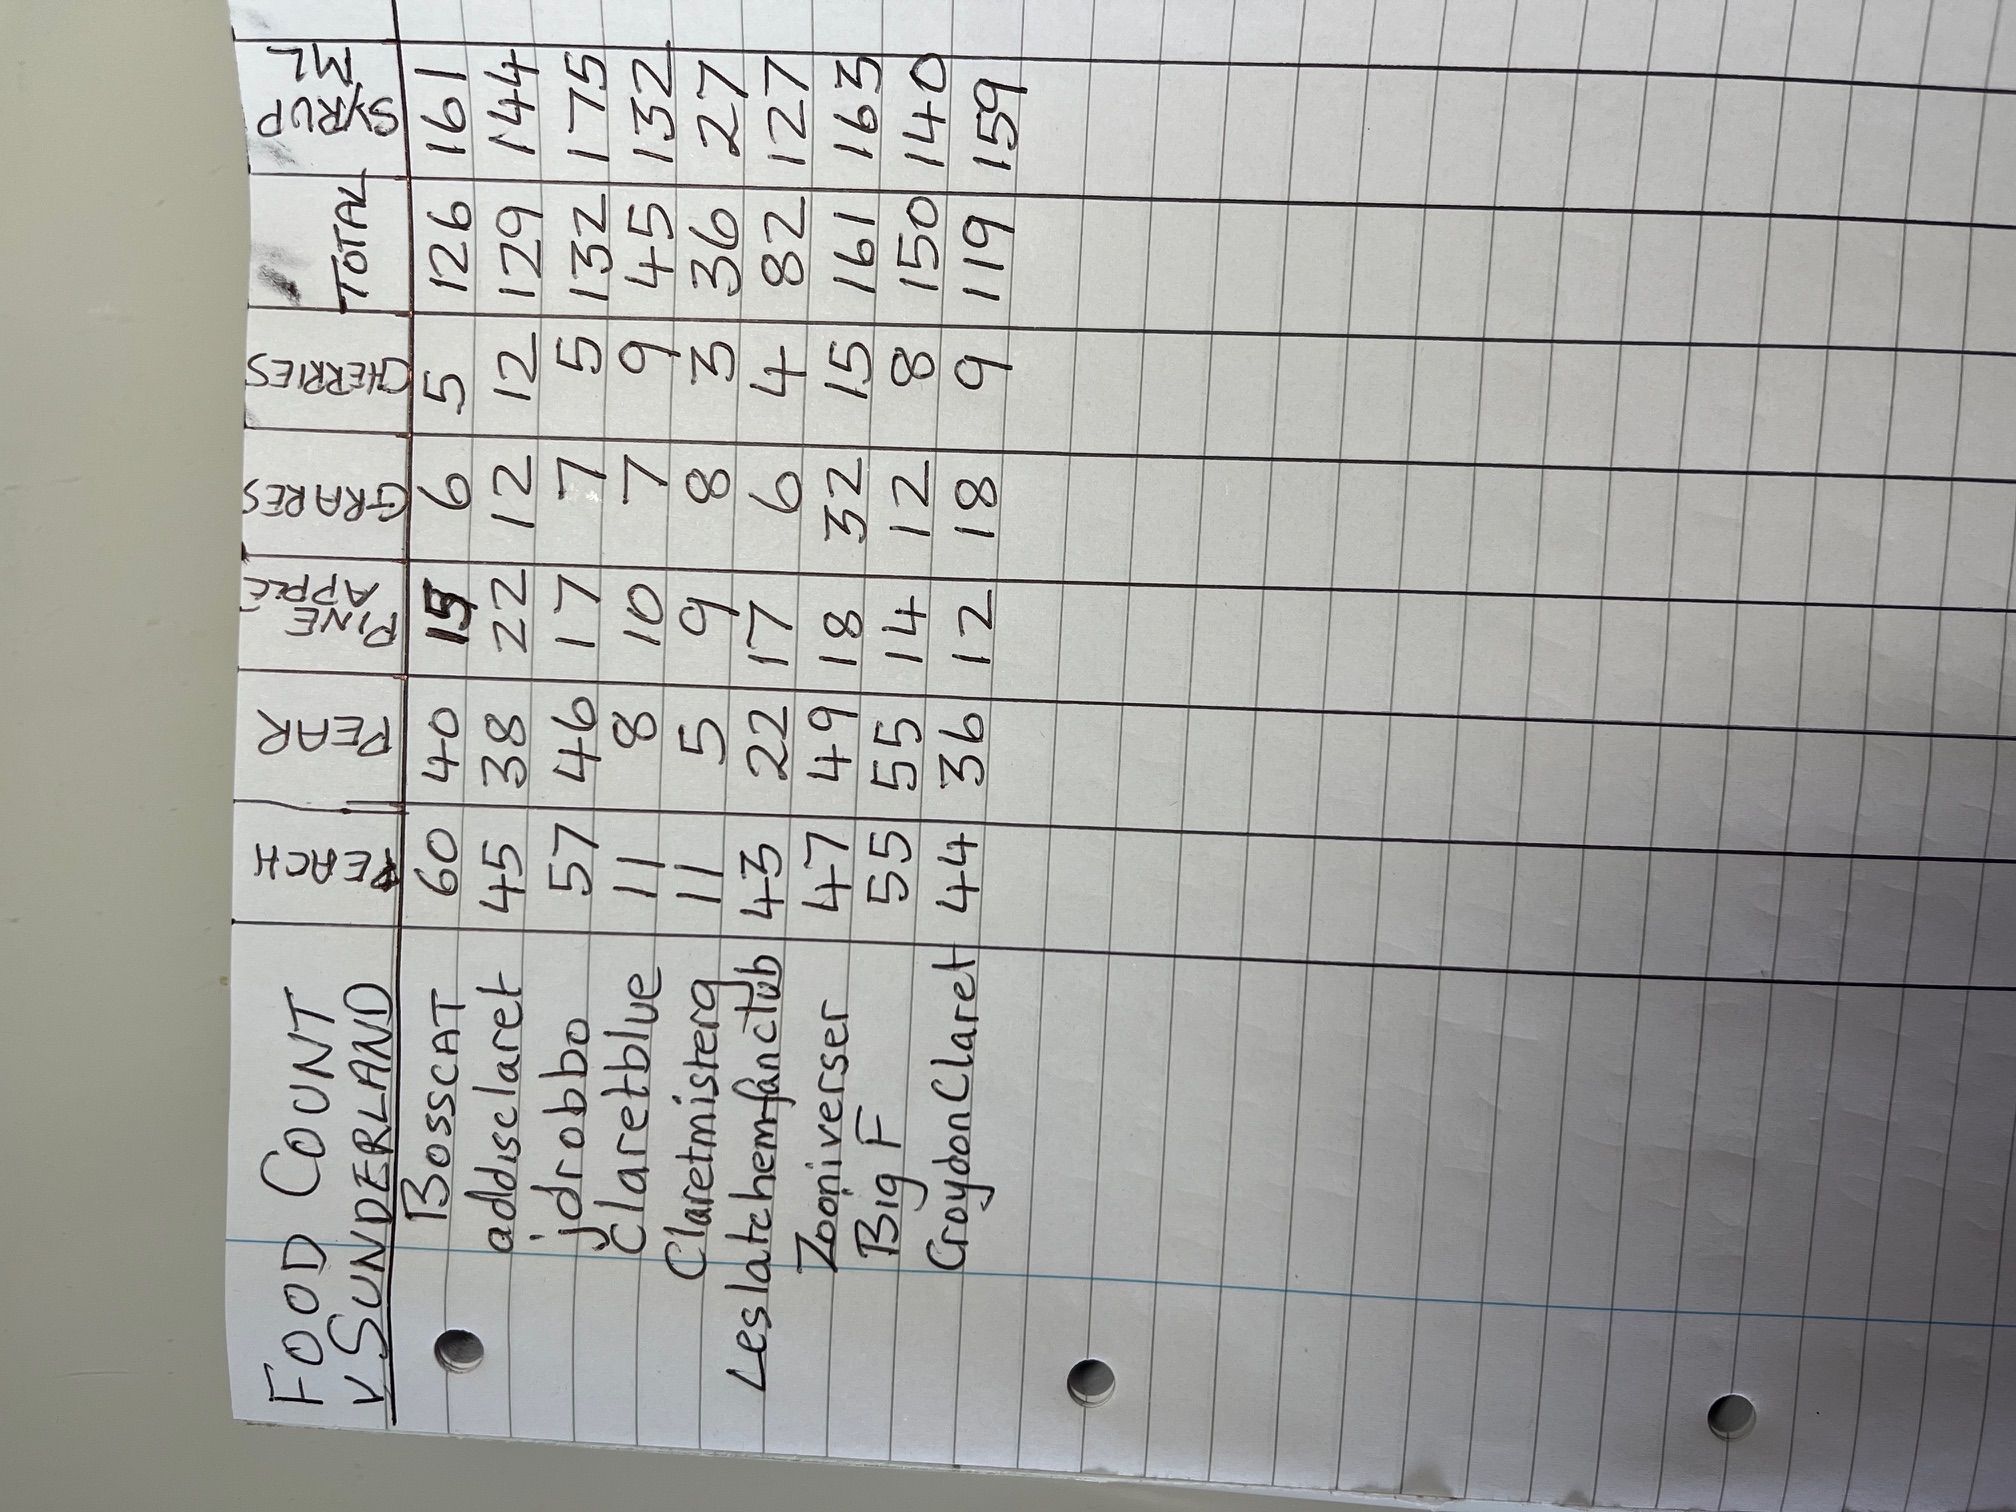 FOOD COUNT PEACH PEAR PINE APPLE GRAPES CHERRIES TOTAL SYRUP ML
v SUNDERLAND
BOSSCAT 60 40 15 6 5 126 161
addisclaret 45 38 22 12 12 129 144
jdrobbo 57 46 17 7 5 132 175
Claretblue 11 8 10 7 9 45 132
Claretmisterg 11 5 9 8 3 36 27
Leslatchemfanclub 43 22 17 6 4 82 127
Zooniverser 47 49 18 32 15 161 163
Big F 55 55 14 12 8 150 140
CroydonClaret 44 36 12 18 9 119 159